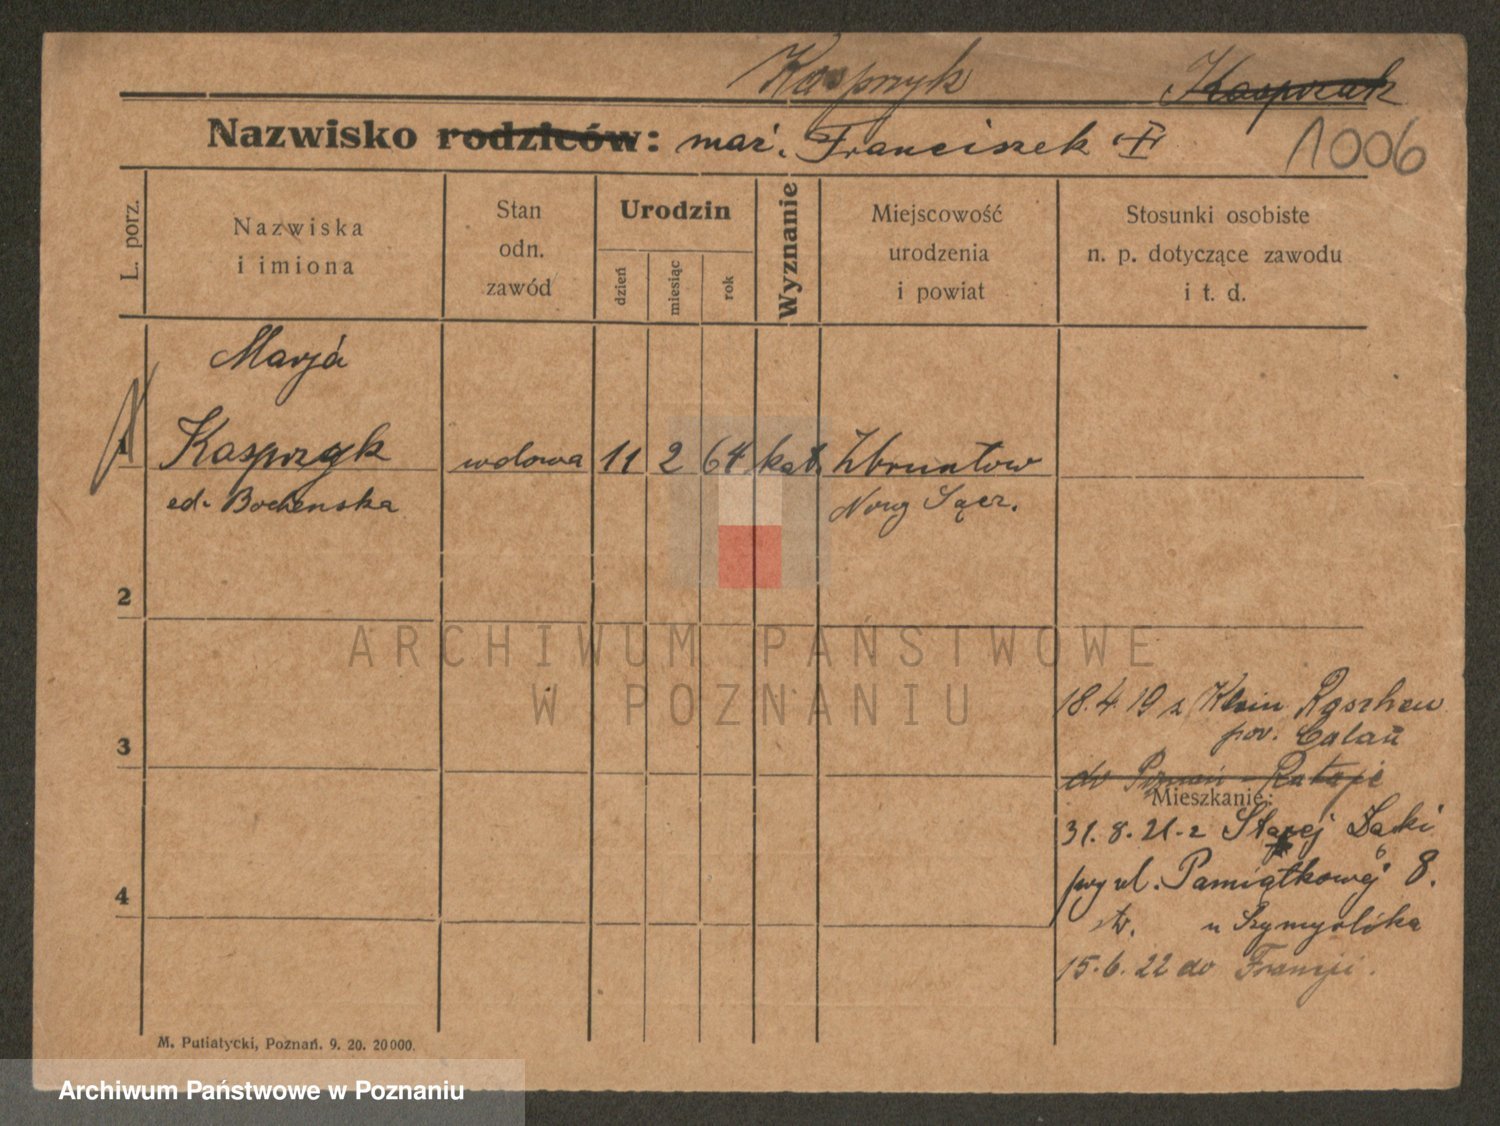 Kasprzyk Kasprzak
Nazwisko rodziców: mąż. Franciszek
1006
L. porz.
Nazwiska
i imiona
Stan
odn.
zawód
Urodzin
dzień
miesiąc
rok
Wyznanie
Miejscowość
urodzenia
i powiat
Stosunki osobiste
n. p. dotyczące zawodu
i t. d.
Marja
1
Kasprzyk wdowa 11 2 64 kat.
Bochenska Sącz.
2
ARCHIWUM PAŃSTWOWE
W POZNANIU
18.4.19 z Klein
3
pow. Calau
do Poznań - Rataje
Mieszkanie:
31.8.21 z Starej
przy ul. Pamiątkowej 8.
4
u
15.6.22 do Francji.
M. Putiatycki, Poznań. 9. 20. 20000.
Archiwum Państwowe w Poznaniu